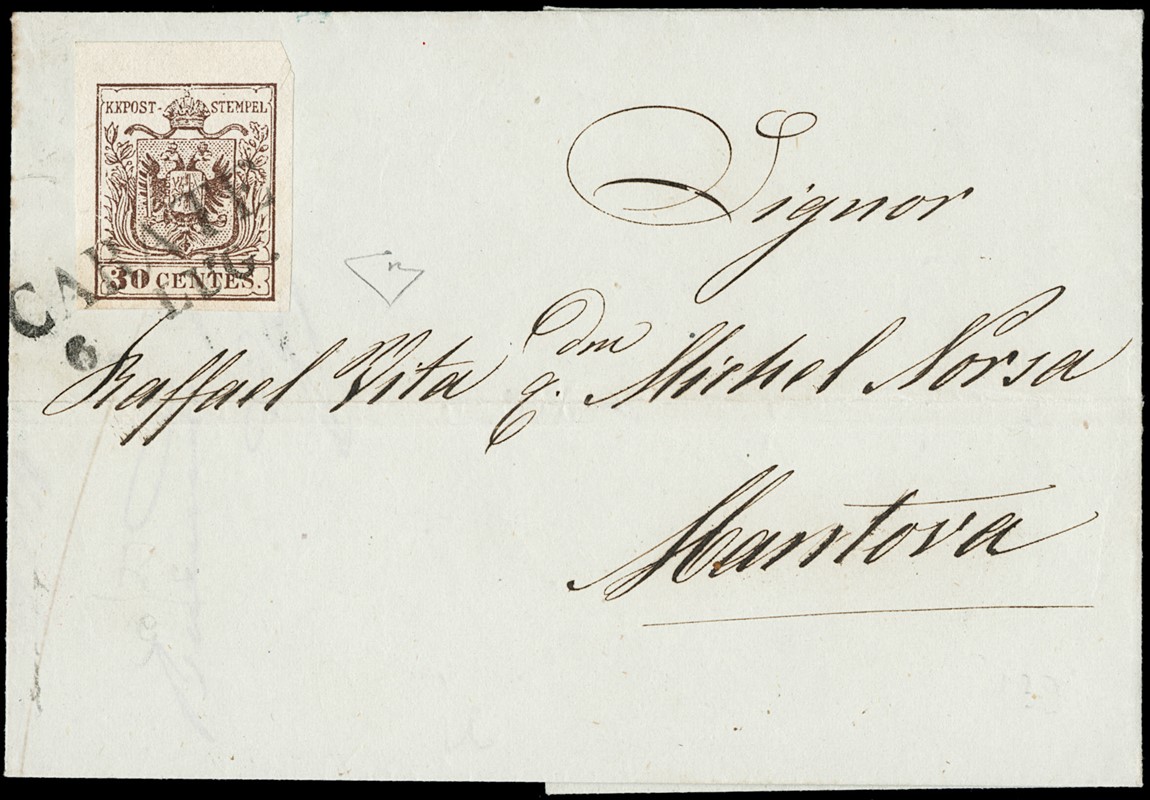 KKPOST-STEMPEL
30 CENTES.
6 LUG.
Signor
Raffael Vita q.dm Michel Norsa
Mantova